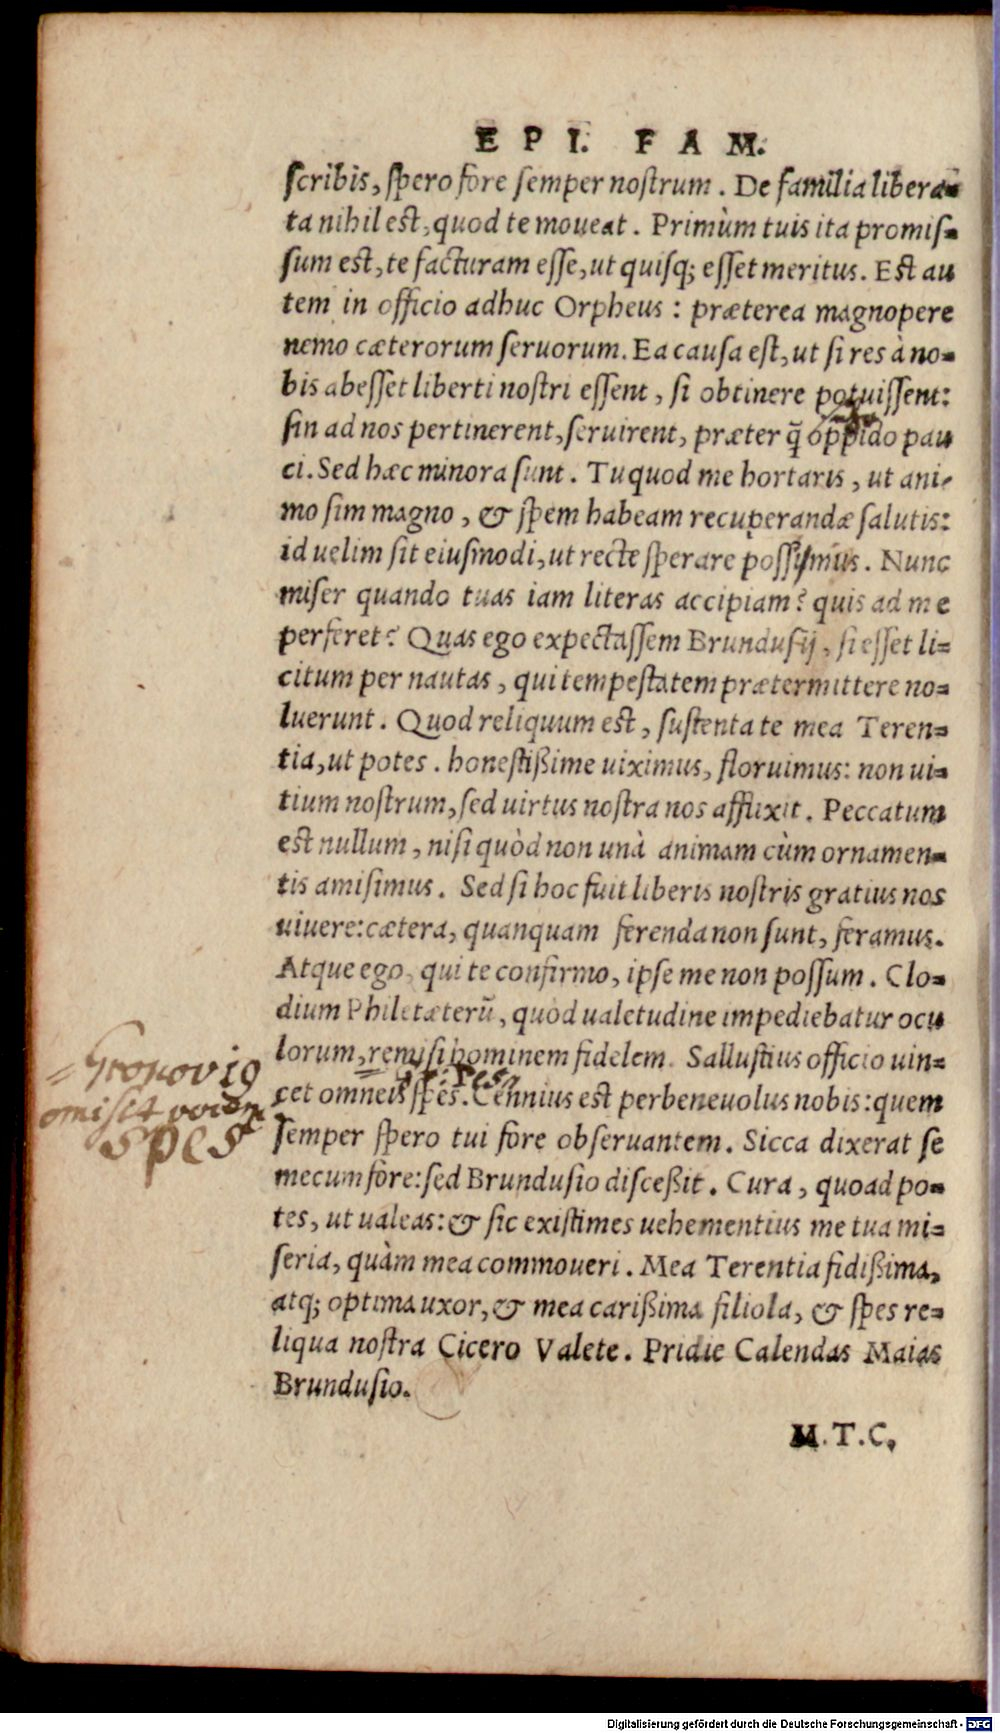 EPI. FAM.
scribis, spero fore semper nostrum. De familia libera-
ta nihil est, quod te moueat. Primùm tuis ita promis-
sum est, te facturam esse, ut quisq; esset meritus. Est au
tem in officio adhuc Orpheus: præterea magnopere
nemo cæterorum seruorum. Ea causa est, ut si res à no-
bis abesset liberti nostri essent, si obtinere potuissent:
sin ad nos pertinerent, seruirent, præter q̃ oppido pau
ci. Sed hæc minora sunt. Tu quod me hortaris, ut ani-
mo sim magno, & spem habeam recuperandæ salutis:
id uelim sit eiusmodi, ut recte sperare possimus. Nunc
miser quando tuas iam literas accipiam? quis ad me
perferet? Quas ego expectassem Brundusij, si esset li-
citum per nautas, qui tempestatem prætermittere no-
luerunt. Quod reliquum est, sustenta te mea Teren-
tia, ut potes. honestißime uiximus, floruimus: non ui-
tium nostrum, sed uirtus nostra nos afflixit. Peccatum
est nullum, nisi quòd non unà animam cùm ornamen-
tis amisimus. Sed si hoc fuit liberis nostris gratius nos
uiuere: cætera, quanquam ferenda non sunt, feramus.
Atque ego, qui te confirmo, ipse me non possum. Clo-
dium Philetæterũ, quòd ualetudine impediebatur ocu
lorum, remisi hominem fidelem. Sallustius officio uin-
cet omneis spes. Cennius est perbeneuolus nobis: quem
semper spero tui fore obseruantem. Sicca dixerat se
mecum fore: sed Brundusio disceßit. Cura, quoad po-
tes, ut ualeas: & sic existimes uehementius me tua mi-
seria, quàm mea commoueri. Mea Terentia fidißima,
atq; optima uxor, & mea carißima filiola, & spes re-
liqua nostra Cicero Valete. Pridie Calendas Maias
Brundusio.
M.T.C.
= Gronovig
omisit vocem
spes
Digitalisierung gefördert durch die Deutsche Forschungsgemeinschaft - DFG